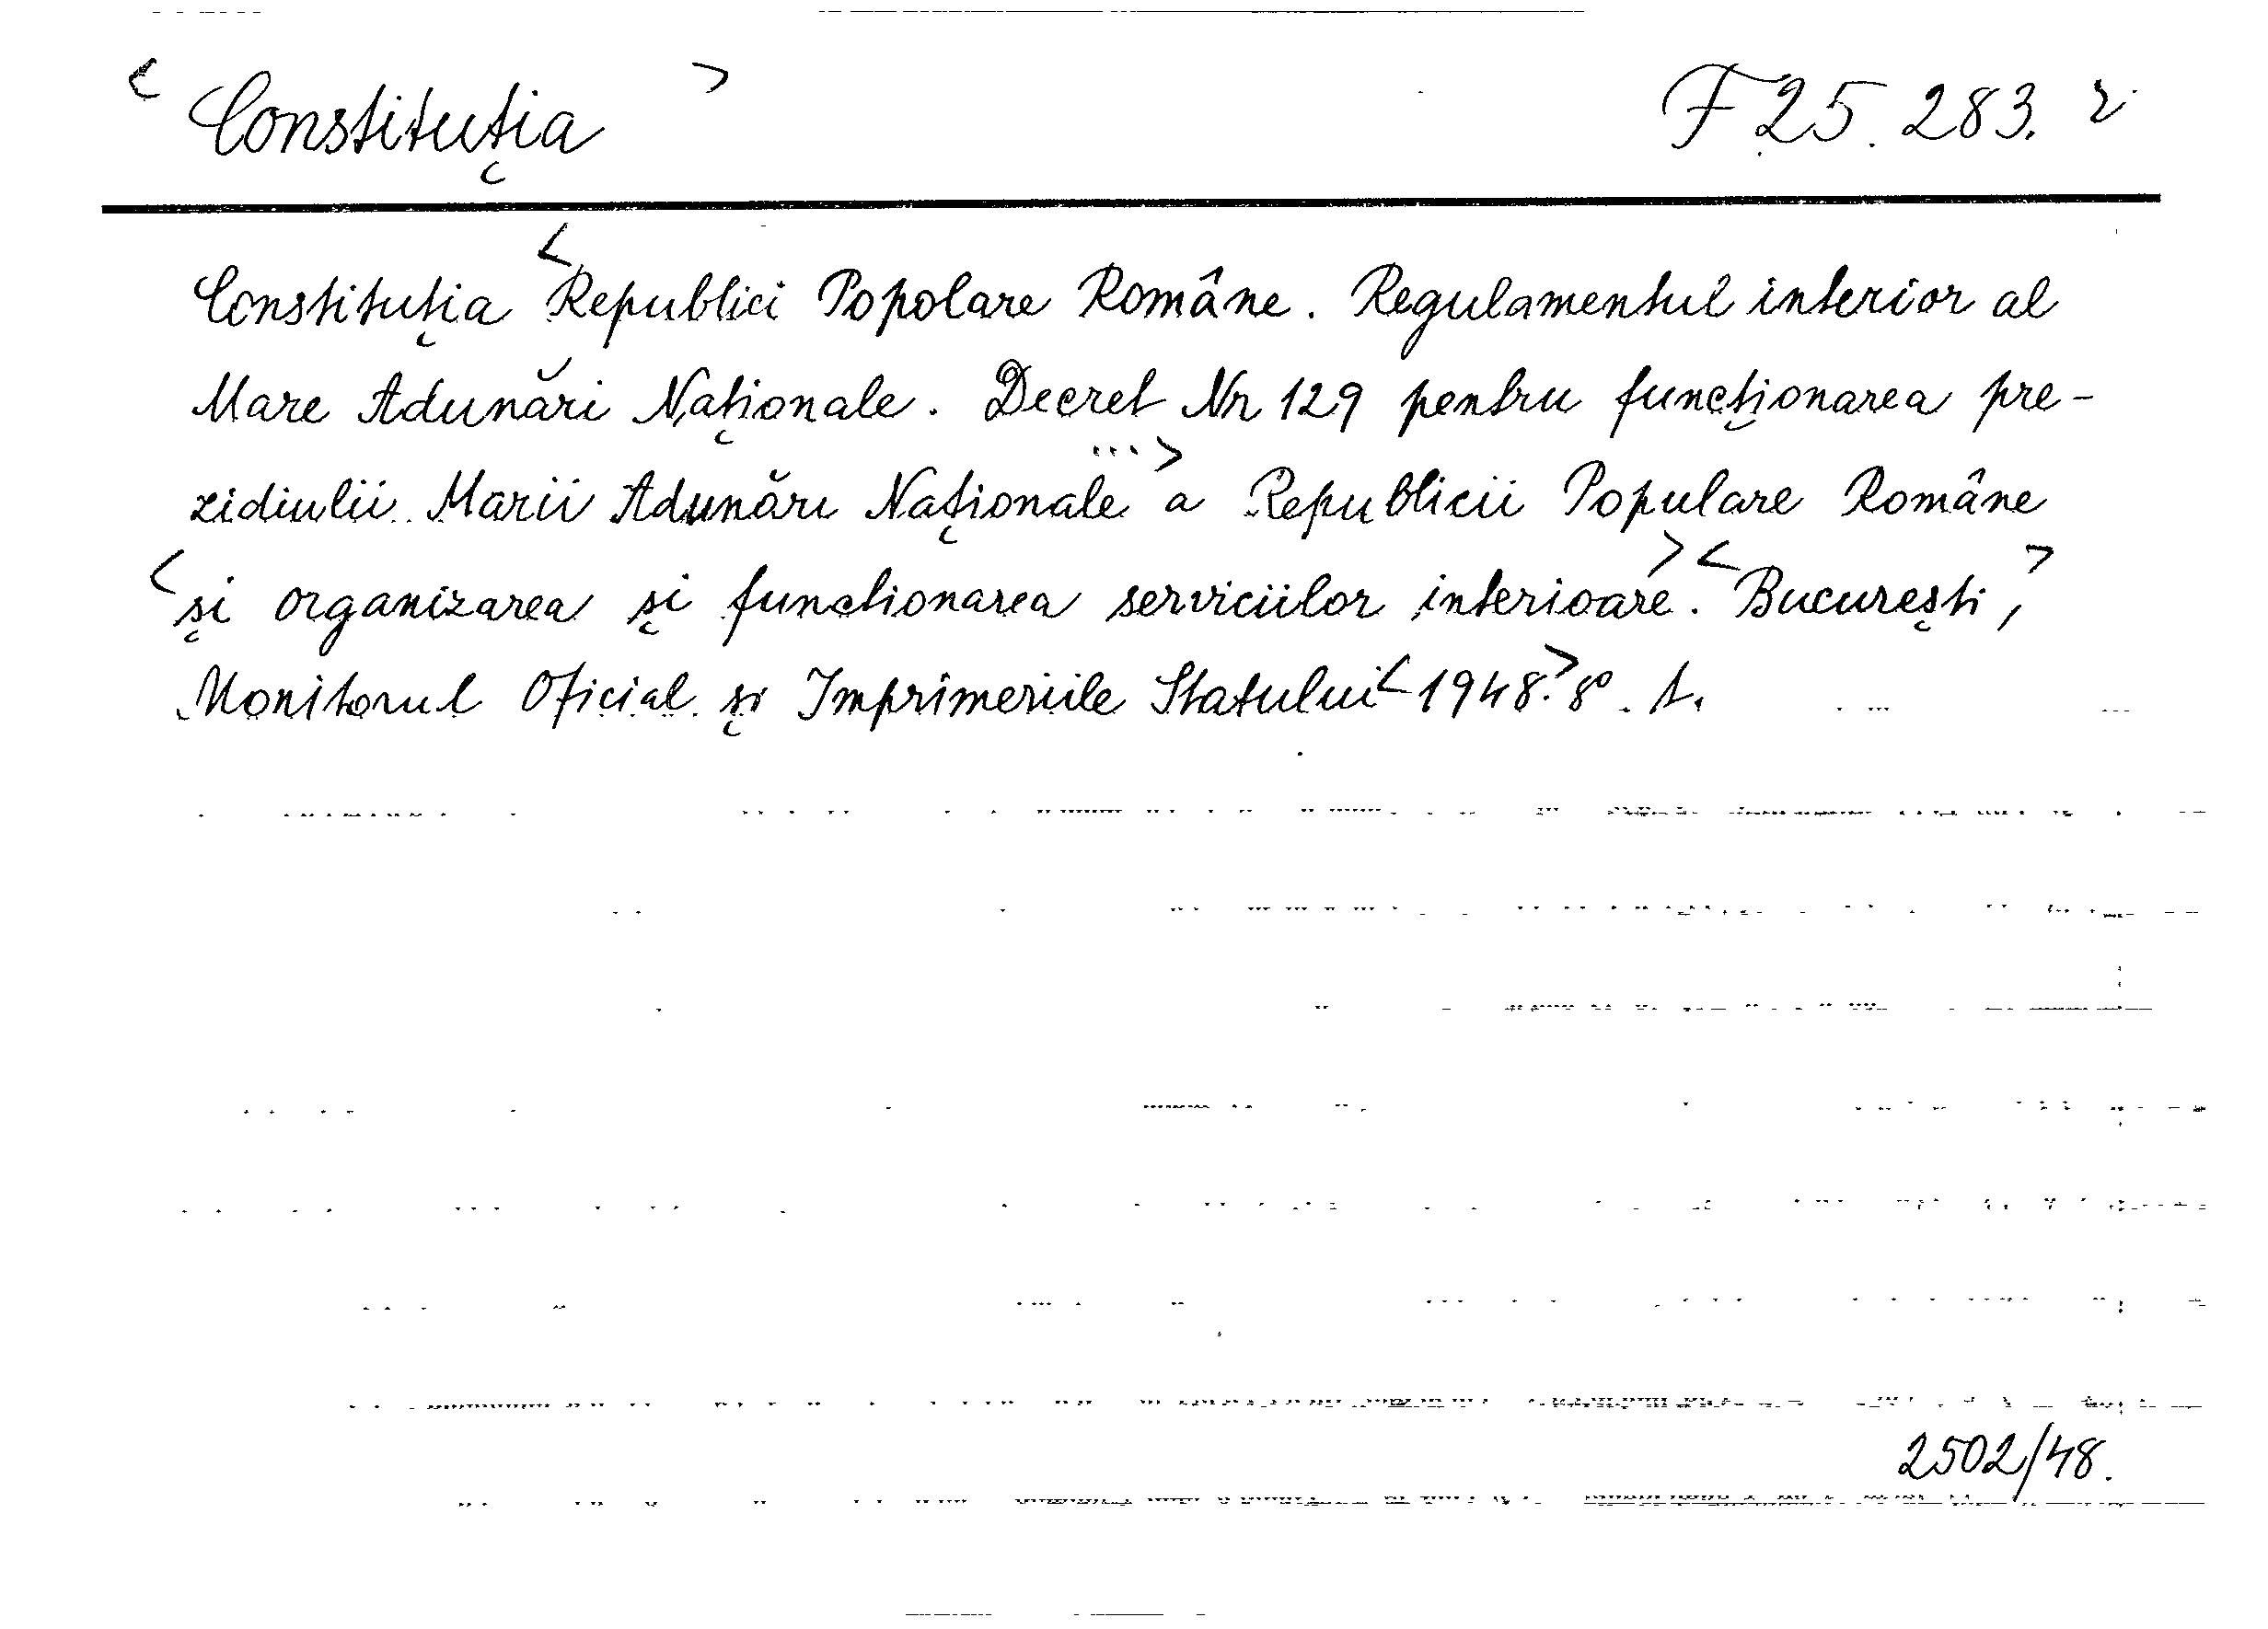 < Constituția > F 25.283. r
Constituția < Republici Popolare Române. Regulamentul interior al
Mare Adunări Naționale. Decret Nr 129 pentru funcționarea pre-
zidiulii Marii Adunări Naționale ...> a Republicii Populare Române
< și organizarea și functionarea serviciilor interioare. >< București, >
Monitorul Oficial și Imprimeriile Statului < 1948. > 8°. t.
2502/48.